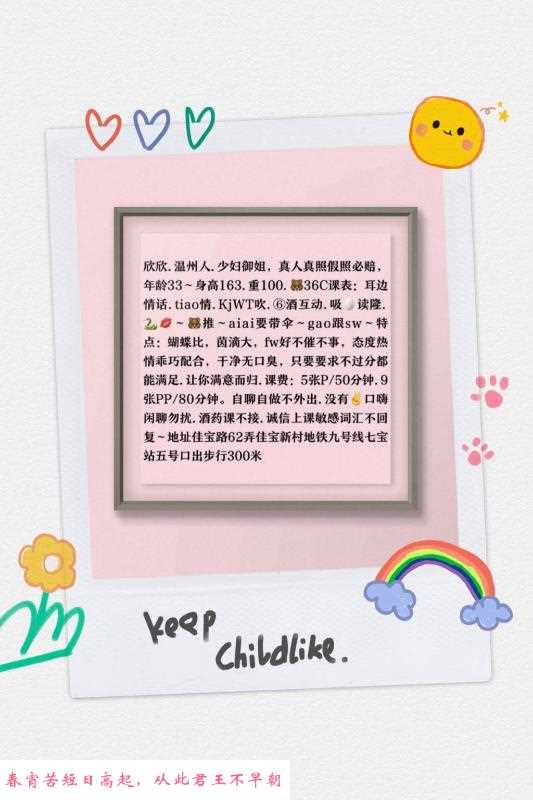 欣欣.温州人.少妇御姐，真人真照假照必赔，
年龄33～身高163.重100.🐻36C课表：耳边
情话.tiao情.KjWT吹.⑥酒互动.吸🥚读隆.
🐍💋～🐻推～aiai要带伞～gao跟sw～特
点：蝴蝶比，茵滴大，fw好不催不事，态度热
情乖巧配合，干净无口臭，只要要求不过分都
能满足.让你满意而归.课费：5张P/50分钟.9
张PP/80分钟。自聊自做不外出.没有✌️口嗨
闲聊勿扰.酒药课不接.诚信上课敏感词汇不回
复～地址佳宝路62弄佳宝新村地铁九号线七宝
站五号口出步行300米
keep
childlike.
春宵苦短日高起，从此君王不早朝